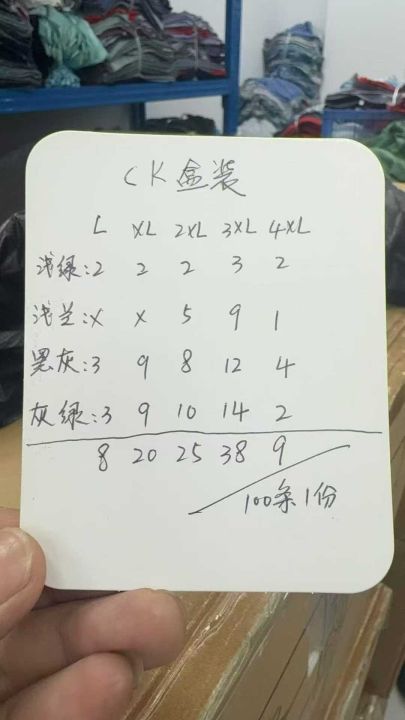 CK盒装
L XL 2XL 3XL 4XL
浅绿:2 2 2 3 2
浅兰:x x 5 9 1
黑灰:3 9 8 12 4
灰绿:3 9 10 14 2
8 20 25 38 9
100条1份